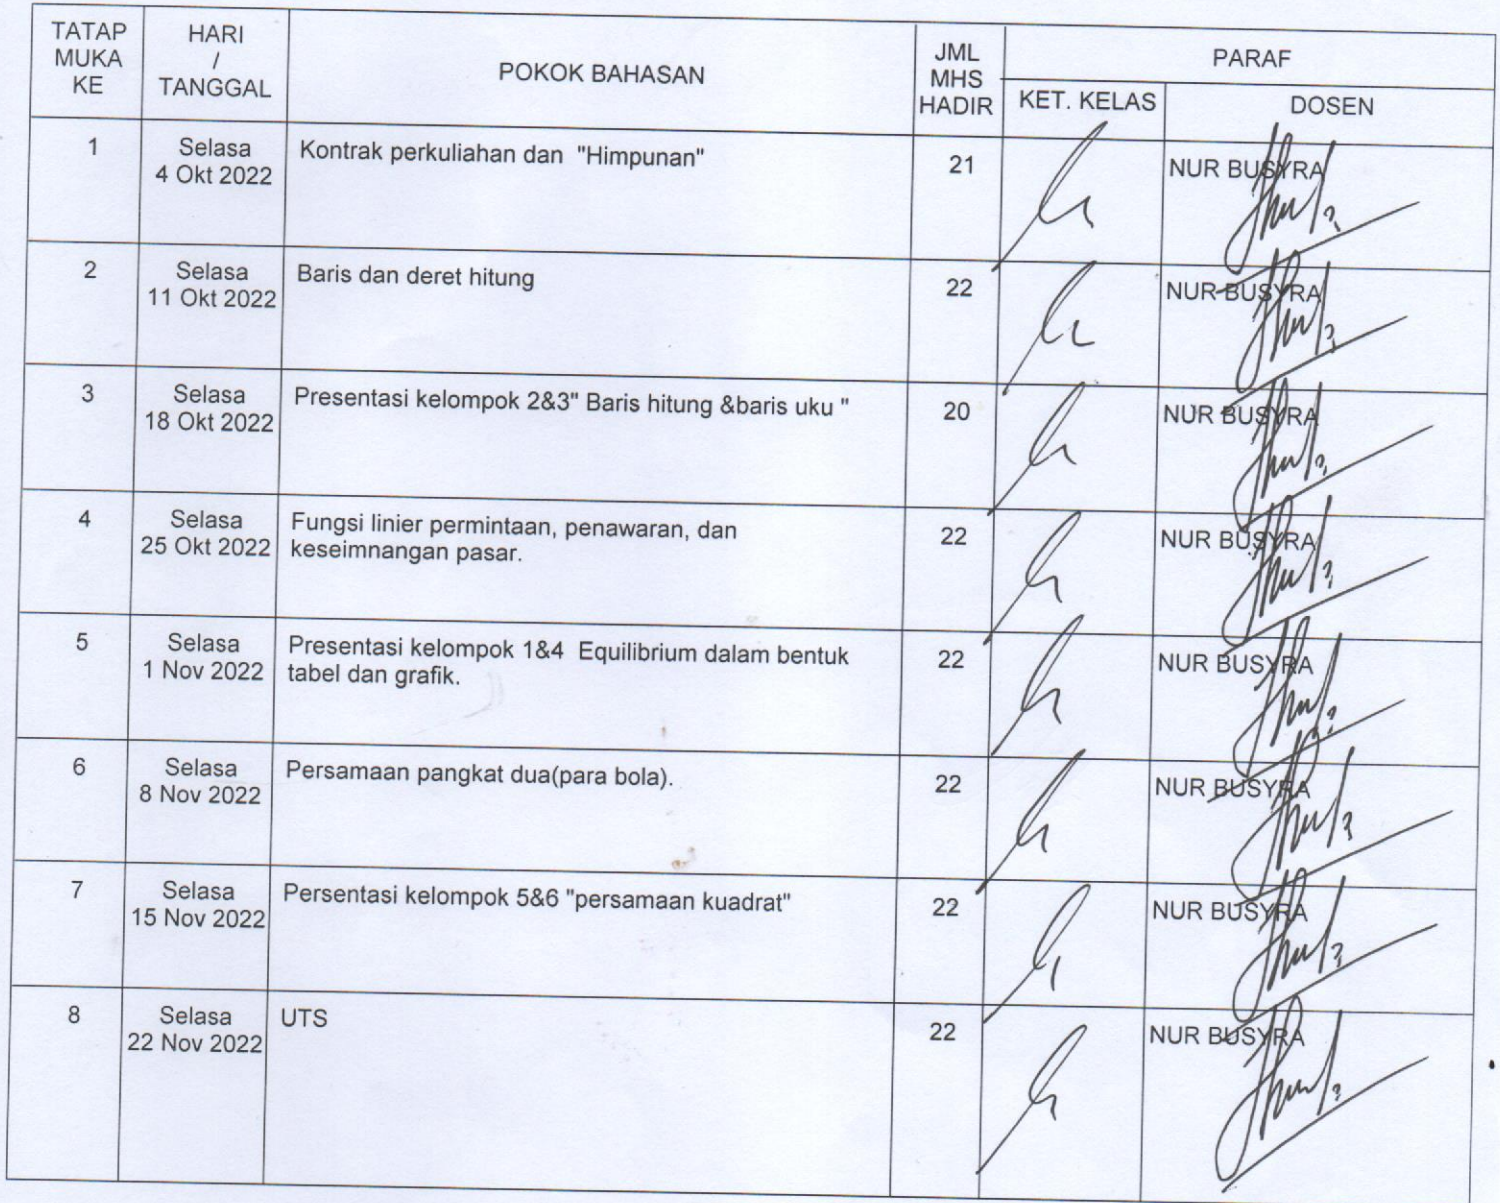 TATAP
MUKA
KE
HARI
/
TANGGAL
POKOK BAHASAN
JML
MHS
HADIR
PARAF
KET. KELAS
DOSEN
1
Selasa
4 Okt 2022
Kontrak perkuliahan dan "Himpunan"
21
NUR BUSYRA
2
Selasa
11 Okt 2022
Baris dan deret hitung
22
NUR BUSYRA
3
Selasa
18 Okt 2022
Presentasi kelompok 2&3" Baris hitung &baris uku "
20
NUR BUSYRA
4
Selasa
25 Okt 2022
Fungsi linier permintaan, penawaran, dan
keseimnangan pasar.
22
NUR BUSYRA
5
Selasa
1 Nov 2022
Presentasi kelompok 1&4 Equilibrium dalam bentuk
tabel dan grafik.
22
NUR BUSYRA
6
Selasa
8 Nov 2022
Persamaan pangkat dua(para bola).
22
NUR BUSYRA
7
Selasa
15 Nov 2022
Persentasi kelompok 5&6 "persamaan kuadrat"
22
NUR BUSYRA
8
Selasa
22 Nov 2022
UTS
22
NUR BUSYRA